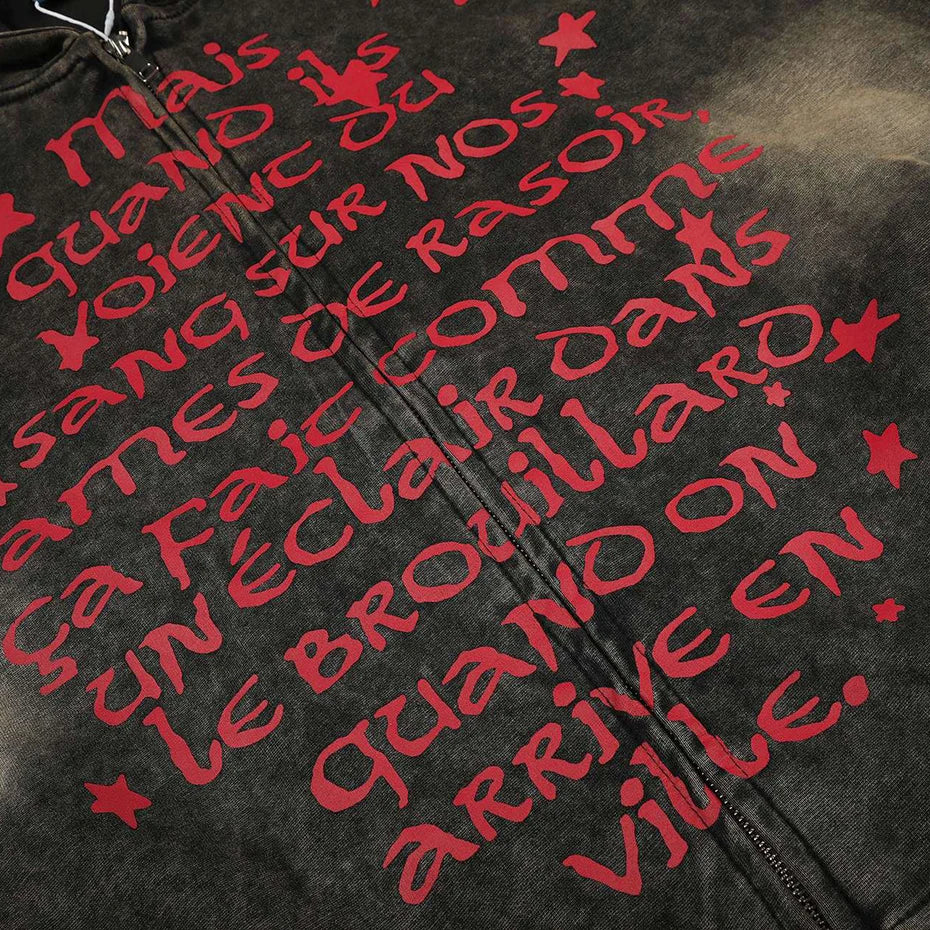 mais
quand ils
voient du
sang sur nos
ames de rasoir,
ça fait comme
un éclair dans
le brouillard
quand on
arrive en
ville.